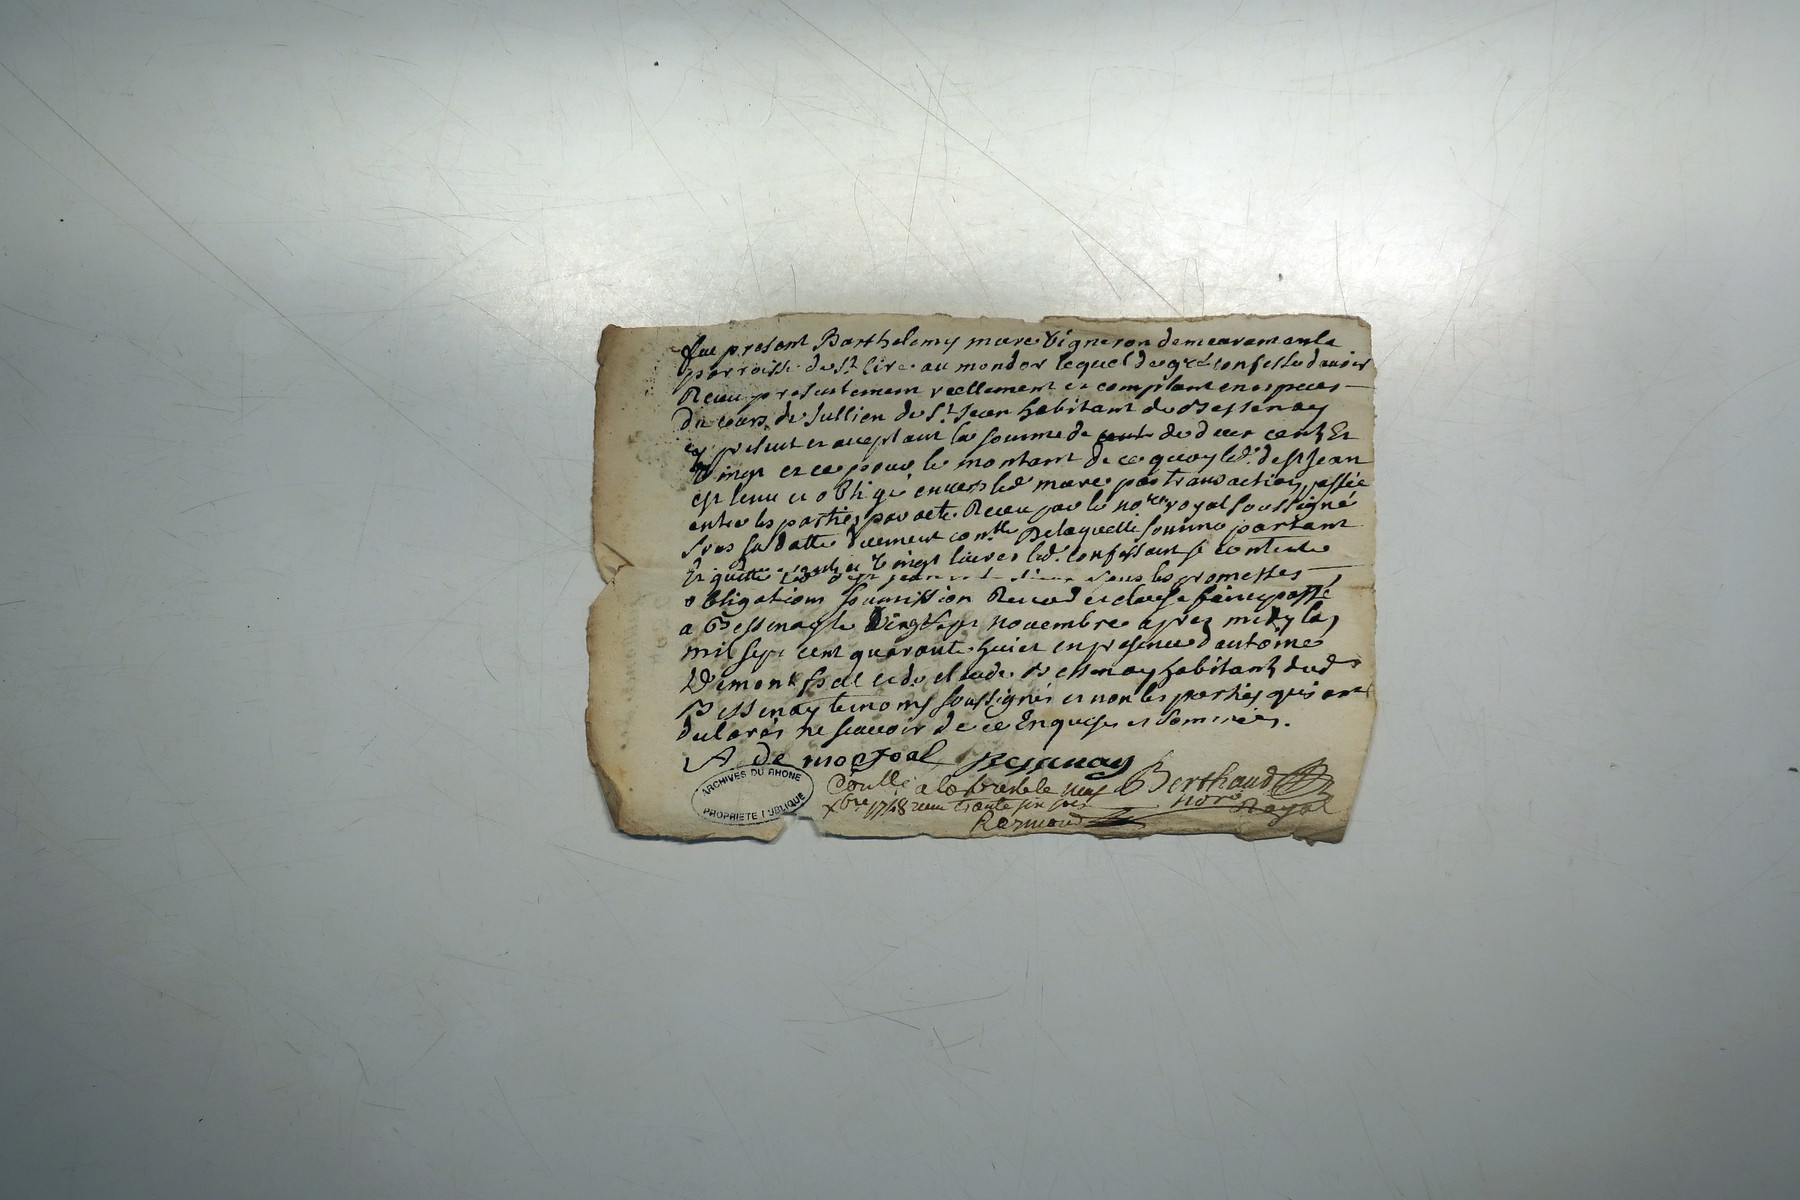 fut present Barthelemy mare Vigneron demeurant en la
parroisse de St Cire au mondor lequel de gré confesse d'avoir
Receu presentement reellement et comptant en especes
du cours de Jullien de St Jean habitant de Bessenay
cy present et acceptant la somme de cent de deux cents Et
Vingt et ce pour le montant de ce quoy led. de St Jean
est tenu et obligé envers led mare par transaction passée
entre les parties par acte Receu par le nore royal soussigné
sous sa datte duement conllé De laquelle somme partant
et Vingt livres led. confessant se contente
Et quitte led de St jean sous les promesses
obligations soumission Renond et clause fait et passé
a Bessenay le Vingt sept novembre apres midy la,
mil sept cent quarante huict en presence d'antoine
Demontfoal et de claude Bessenay habitants dud
Bessenay temoins soussignés et non les parties qui ont
declarés ne scavoir de ce Enquises et sommées.
A de mocfoal Bessenay
Conllé a la Bresle neuf Berthaud
xbre 1748 receu trente six sols nore Royal
Raymond
ARCHIVES DU RHONE
PROPRIETE PUBLIQUE